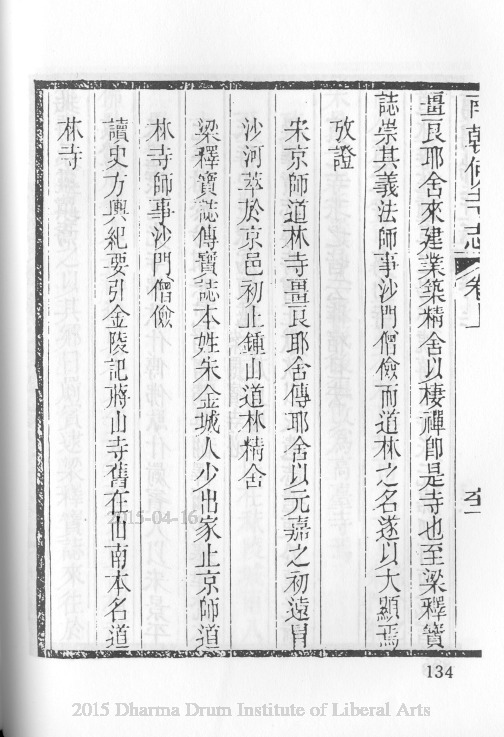 南朝佛寺志 卷上
畺良耶舍來建業築精舍以棲禪卽是寺也至梁釋寶
誌崇其義法師事沙門僧儉而道林之名遂以大顯焉
攷證
宋京師道林寺畺良耶舍傳耶舍以元嘉之初遠冒
沙河萃於京邑初止鍾山道林精舍
梁釋寶誌傳寶誌本姓朱金城人少出家止京師道
林寺師事沙門僧儉
讀史方輿紀要引金陵記蔣山寺舊在山南本名道
林寺
134
2015-04-16
2015 Dharma Drum Institute of Liberal Arts